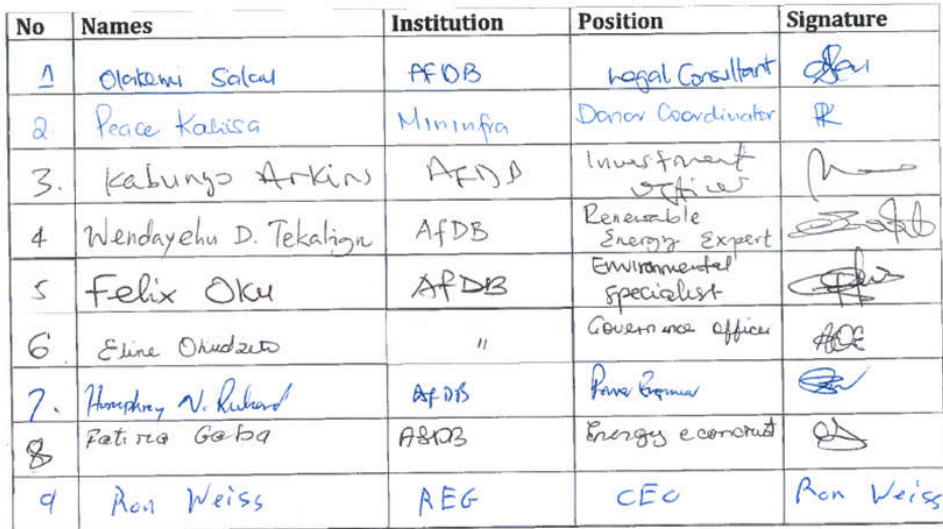 No Names Institution Position Signature
1 Olakemi Salau AfDB Legal Consultant
2. Peace Kaliisa Mininfra Donor Coordinator
3. Kabungo Arkins AfDB Investment
officer
4 Wendayehu D. Tekalign AfDB Renewable
Energy Expert
5 Felix Oku AfDB Environmental
specialist
6 Eline Okudzeto " Governance officer
7. Humphrey N. Richard AfDB Power Engineer
8 Fatima Gaba AfDB Energy economist
9 Ron Weiss REG CEO Ron Weiss